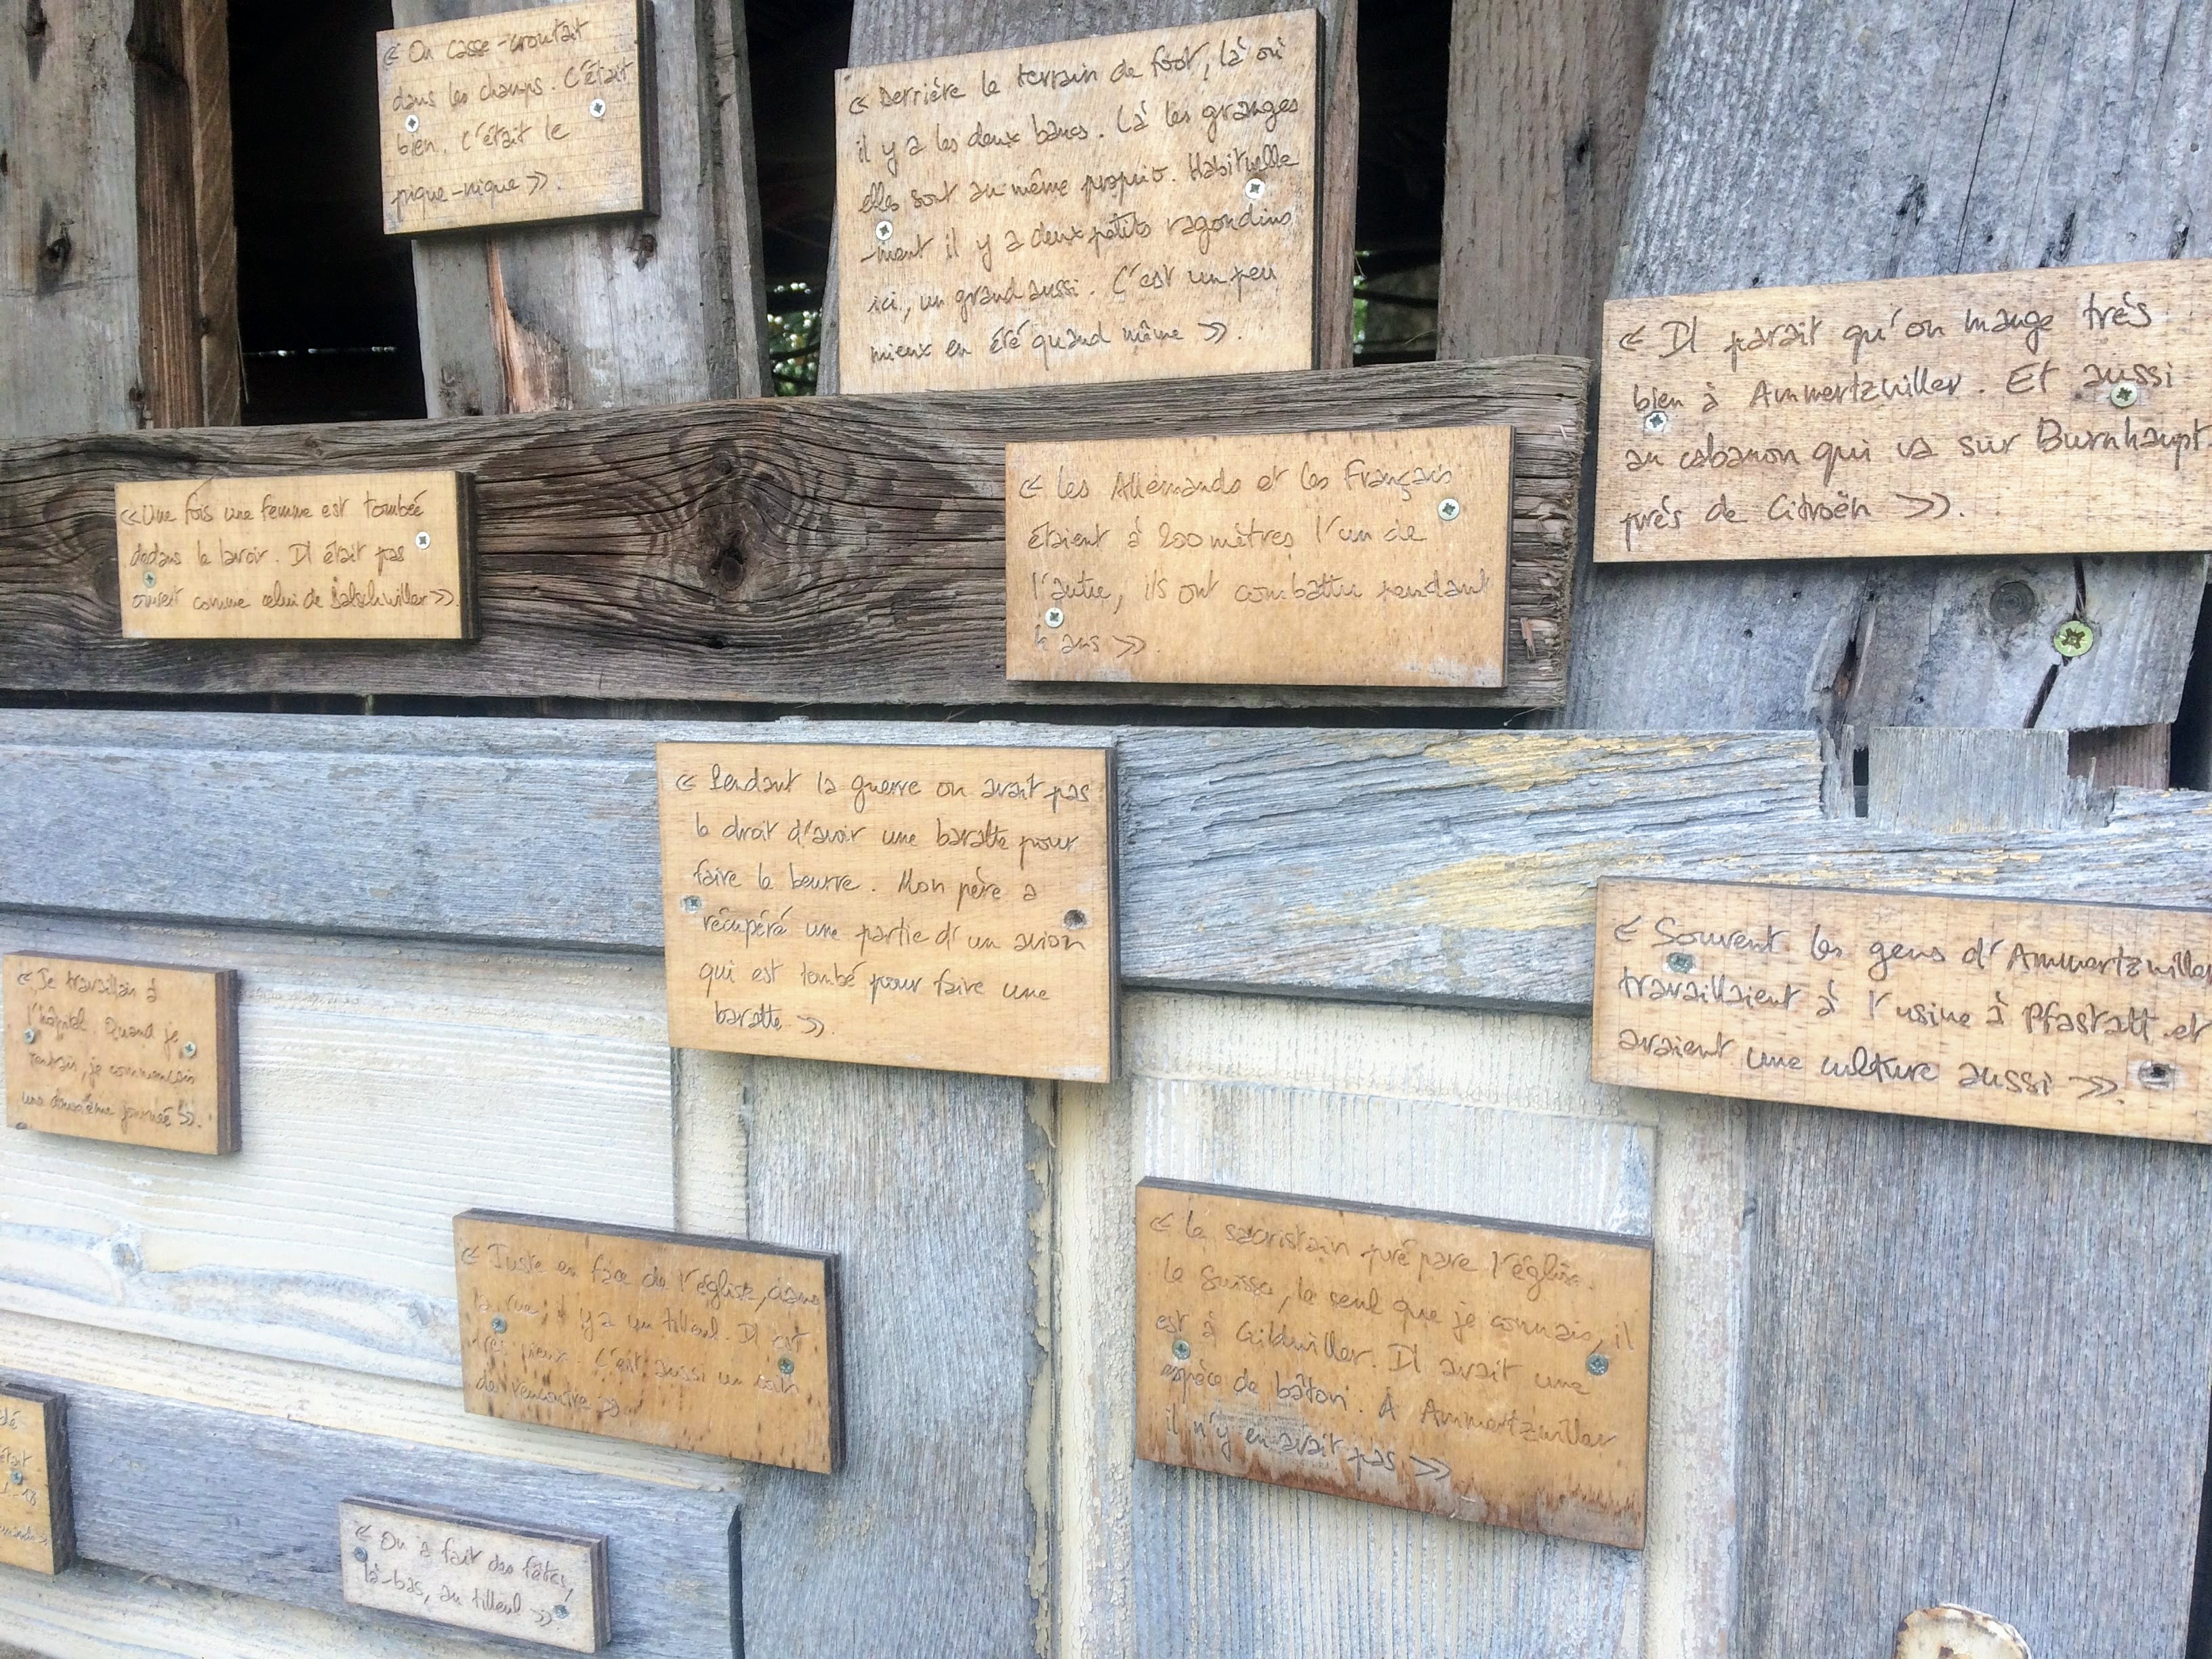 « On casse-croutait
dans les champs. C'était
bien. C'était le
pique-nique ».
« Derrière le terrain de foot, là où
il y a les deux bancs. Là les granges
elles sont au même proprio. Habituelle
-ment il y a deux petits ragondins
ici, un grand aussi. C'est un peu
mieux en été quand même ».
« Il parait qu'on mange très
bien à Ammertzwiller. Et aussi
au cabanon qui va sur Burnhaupt
près de Citroën ».
« Une fois une femme est tombée
dedans le lavoir. Il était pas
ouvert comme celui de Balschwiller ».
« Les Allemands et les Français
étaient à 200 mètres l'un de
l'autre, ils ont combattu pendant
4 ans ».
« Pendant la guerre on avait pas
le droit d'avoir une baratte pour
faire le beurre. Mon père a
récupéré une partie d'un avion
qui est tombé pour faire une
baratte ».
« Souvent les gens d'Ammertzwiller
travaillaient à l'usine à Pfastatt et
avaient une culture aussi ».
« Je travaillais à
l'hôpital. Quand je
rentrais, je commençais
une deuxième journée ».
« Juste en face de l'église, dans
la rue, il y a un tilleul. Il est
très vieux. C'est aussi un coin
de rencontre »
« Le sacristain prépare l'église.
Le Suisse, le seul que je connais, il
est à Gildwiller. Il avait une
espèce de bâton. À Ammertzwiller
il n'y en avait pas »
« On a fait des fêtes,
là-bas, au tilleul »